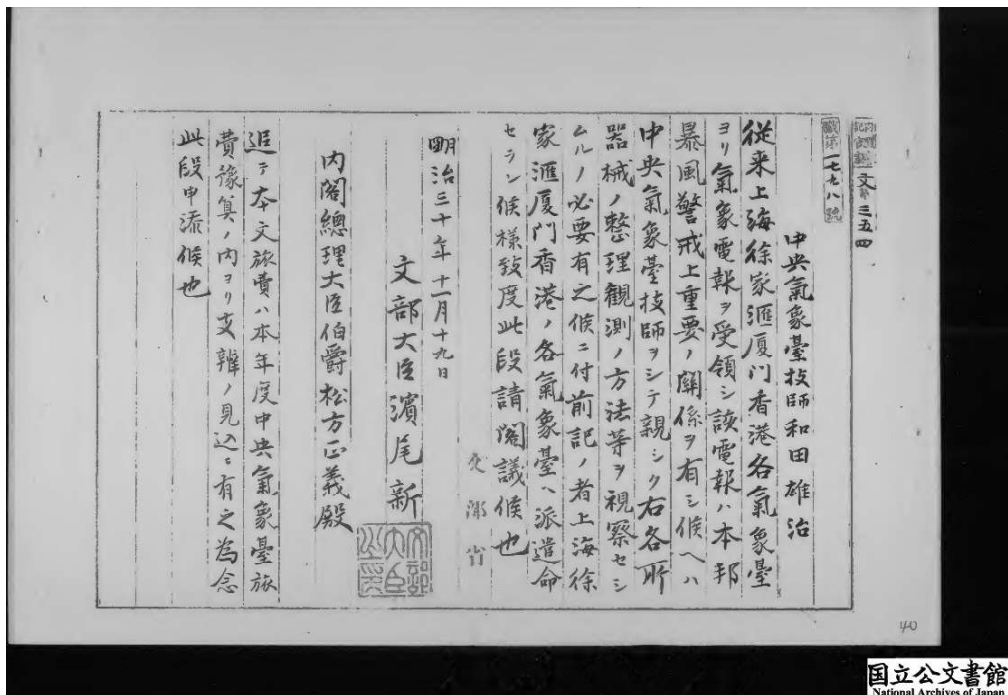 文第三五四
職第一七九八號
中央氣象臺技師和田雄治
従来上海徐家滙厦門香港各氣象臺
ヨリ氣象電報ヲ受領シ該電報ハ本邦
暴風警戒上重要ノ關係ヲ有シ候ヘハ
中央氣象臺技師ヲシテ親シク右各所
器械ノ整理観測ノ方法等ヲ視察セシ
ムルノ必要有之候ニ付前記ノ者上海徐
家滙厦門香港ノ各氣象臺ヘ派遣命
セラレ候様致度此段請閣議候也
文部省
明治三十年十一月十九日
文部大臣濱尾新
文部大臣之印
内閣總理大臣伯爵松方正義殿
追テ本文旅費ハ本年度中央氣象臺旅
費豫算ノ内ヨリ支辨ノ見込ニ有之為念
此段申添候也
40
国立公文書館
National Archives of Japan